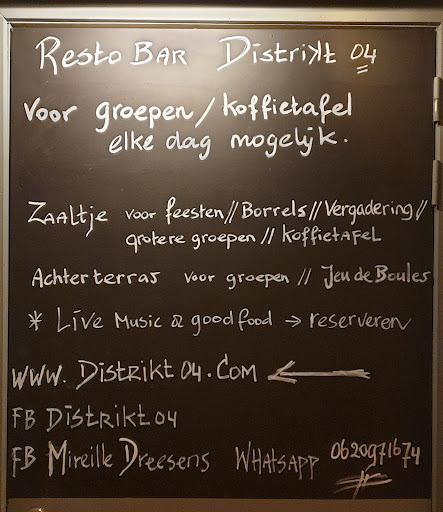 Resto Bar Distrikt 04
Voor groepen / koffietafel
elke dag mogelijk.
Zaaltje voor feesten // Borrels // Vergadering //
grotere groepen // koffietafel
Achterterras voor groepen // Jeu de Boules
* Live Music & good food → reserveren
www. Distrikt 04.Com ←
FB Distrikt 04
FB Mireille Dreesens Whatsapp 0620971674